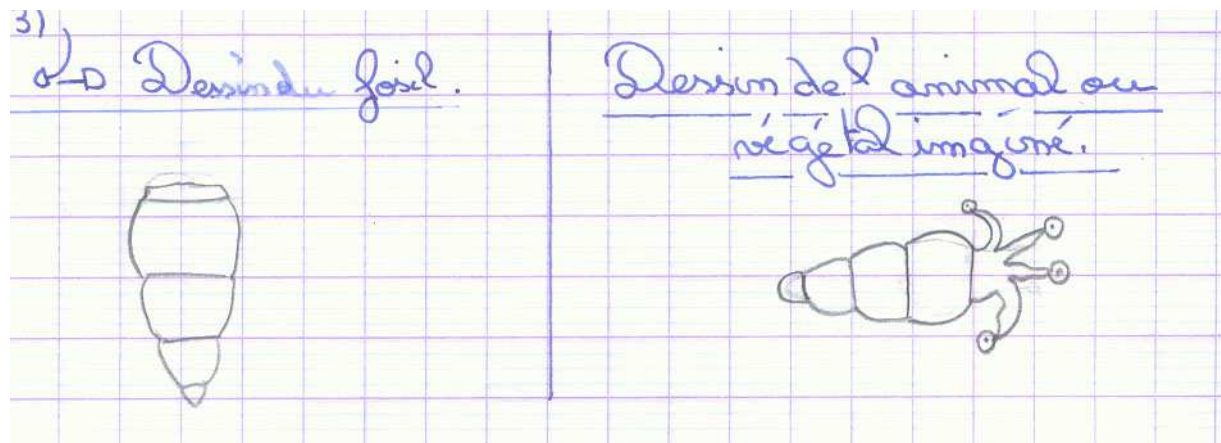 3)
Dessin du fosil.
Dessin de l'animal ou
végétal imaginé.